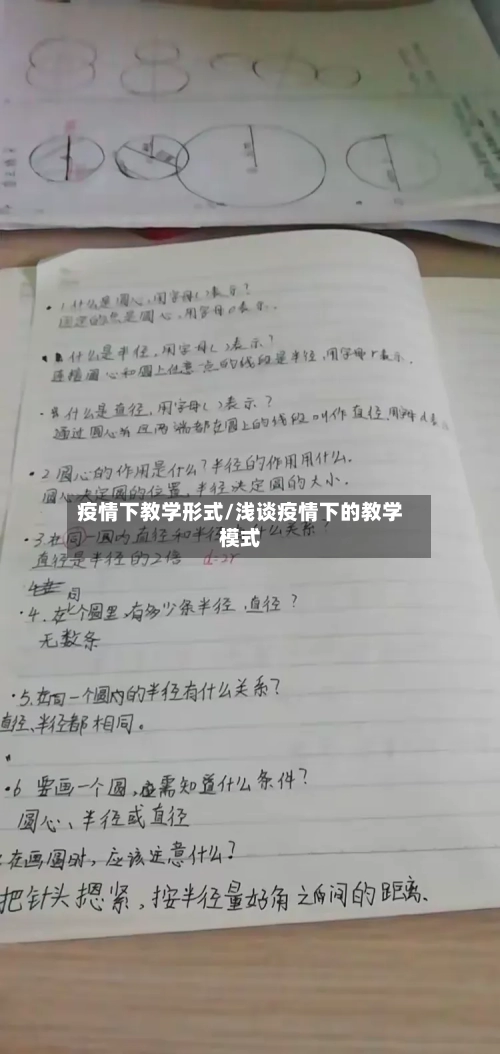 1 什么是圆心,用字母( )表示?
固定的点是圆心,用字母o表示.
什么是半径,用字母( )表示?
连接圆心和圆上任意一点的线段是半径,用字母r表示.
什么是直径,用字母( )表示?
通过圆心并且两端都在圆上的线段叫作直径,用
2 圆心的作用是什么?半径的作用用什么.
圆心决定圆的位置,半径决定圆的大小.
疫情下教学形式/浅谈疫情下的教学
模式
3.在同一圆内直径和半径什么关系?
直径是半径的2倍 d=2r
同
4.在个圆里,有多少条半径,直径?
无数条
5.在同一个圆内的半径有什么关系?
直径、半径都相同。
6 要画一个圆,应需知道什么条件?
圆心、半径或直径
在画圆时,应该注意什么?
把针头摁紧,按半径量好角之间的距离.